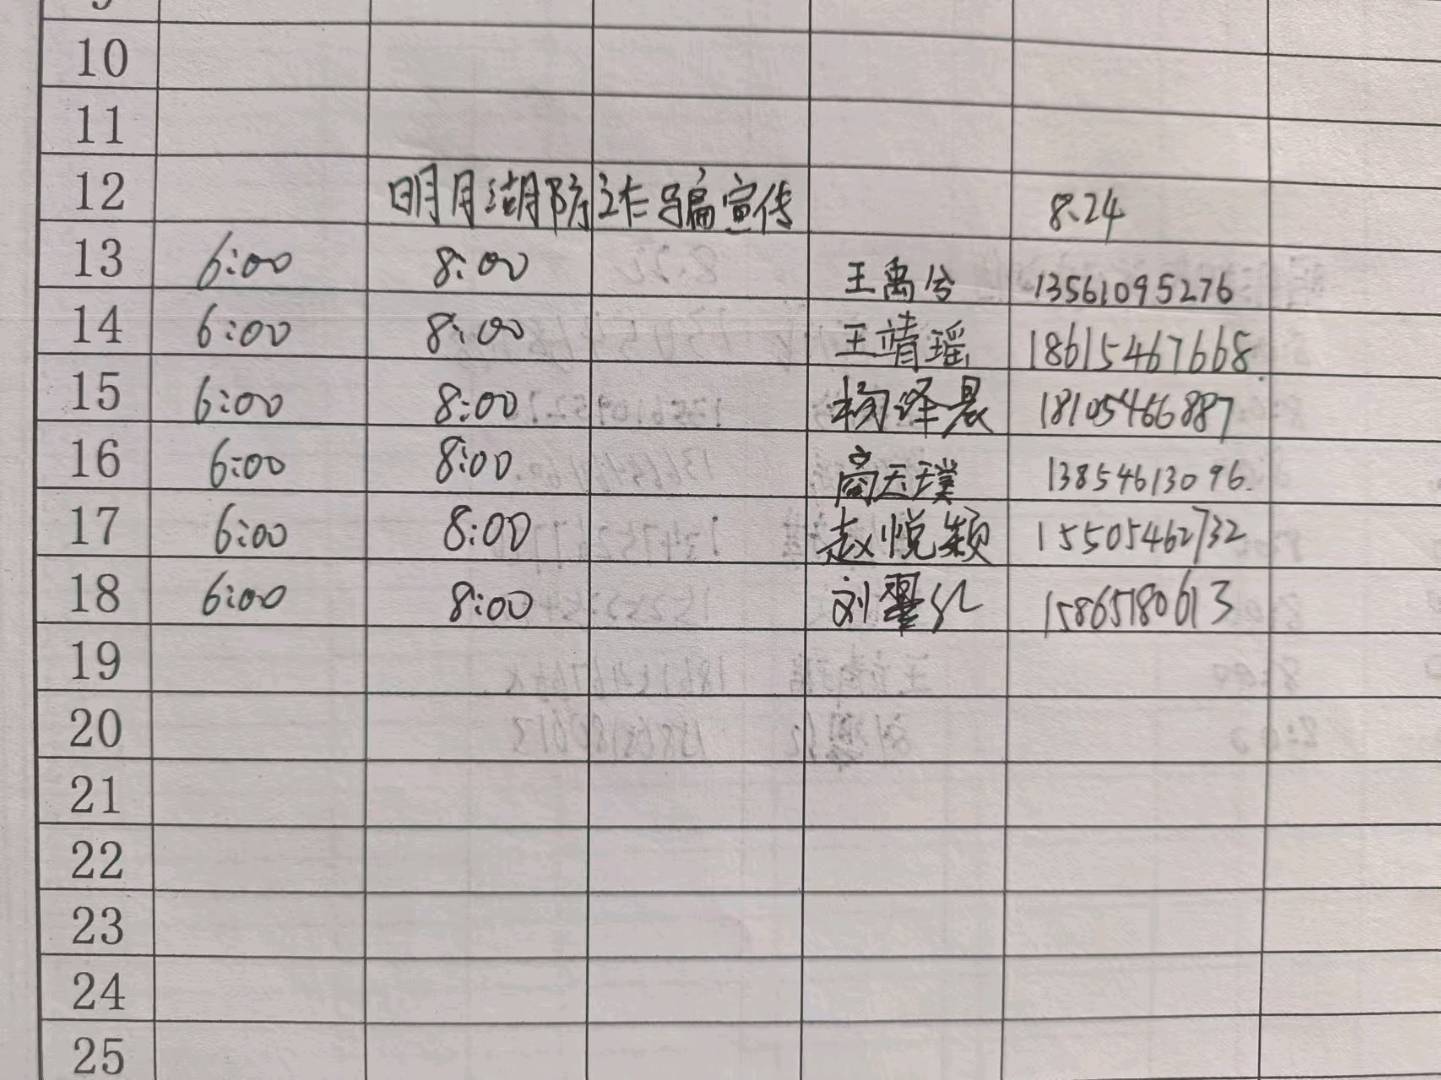 10
11
12 明月湖防诈骗宣传 8.24
13 6:00 8:00 王禹兮 13561095276
14 6:00 8:00 王靖瑶 18615467668
15 6:00 8:00 杨泽晨 18105466887
16 6:00 8:00 高天璞 13854613096
17 6:00 8:00 赵悦颖 15505462732
18 6:00 8:00 刘 15865180613
19
20
21
22
23
24
25